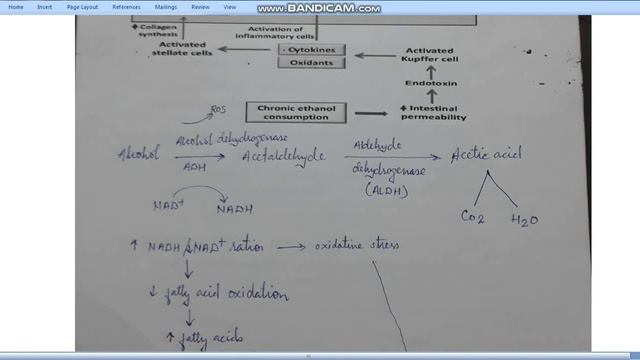 Home Insert Page Layout References Mailings Review View
WWW.BANDICAM.COM
↑ Collagen synthesis
Activation of inflammatory cells
Activated stellate cells
Cytokines
Oxidants
Activated Kupffer cell
Endotoxin
Chronic ethanol consumption
↑ Intestinal permeability
ROS
Alcohol
Alcohol dehydrogenase
ADH
Acetaldehyde
Aldehyde
dehydrogenase
(ALDH)
Acetic acid
NAD+ NADH
CO2 H2O
↑ NADH/NAD+ ration → oxidative stress
↓ fatty acid oxidation
↑ fatty acids